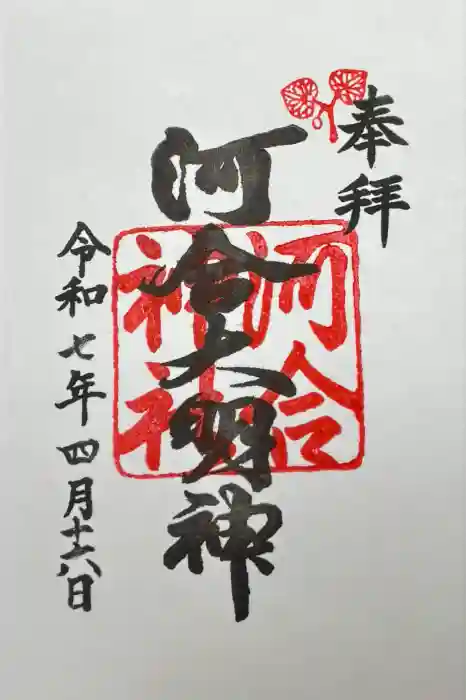 奉拝
河合大明神
河合神社
令和七年四月十六日